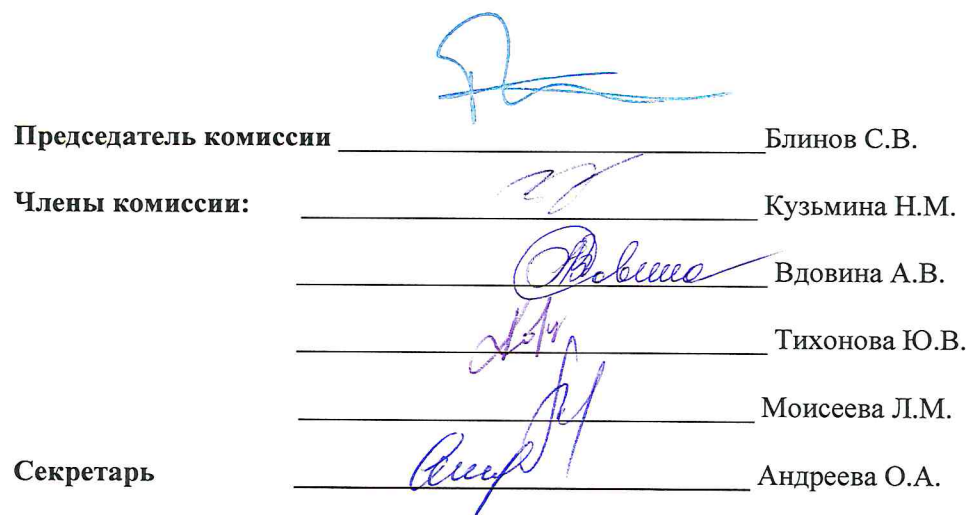 Председатель комиссии Блинов С.В.
Члены комиссии: Кузьмина Н.М.
Вдовина А.В.
Тихонова Ю.В.
Моисеева Л.М.
Секретарь Андреева О.А.